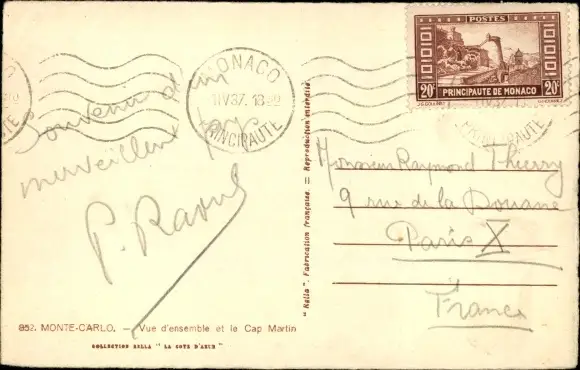 POSTES
20c 20c
PRINCIPAUTÉ DE MONACO
MONACO
IV 37. 18
PRINCIPAUTE
Souvenir d'un
pays
merveilleux
P. Raoul
Monsieur Raymond Thierry
9 rue de la Douane
Paris X
France
"Rella". Fabrication française. = Reproduction interdite.
852. MONTE-CARLO. — Vue d'ensemble et le Cap Martin
COLLECTION RELLA "LA COTE D'AZUR"